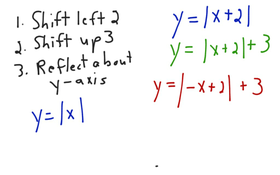 1. Shift left 2
2. Shift up 3
3. Reflect about
y-axis
y = |x|
y = |x+2|
y = |x+2| + 3
y = |-x+2| + 3